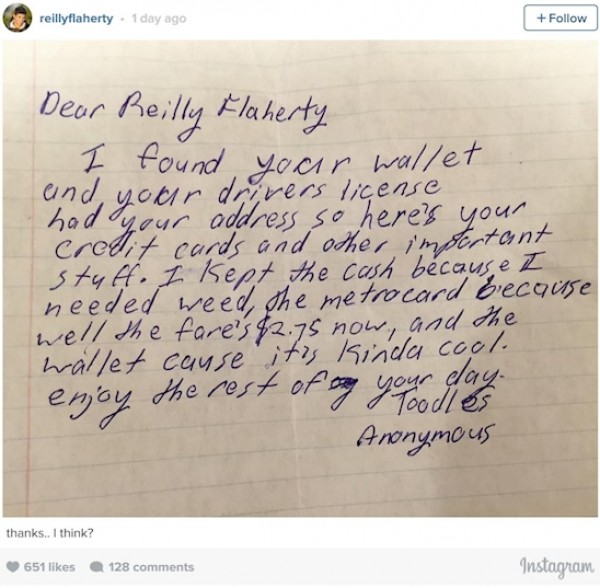 reillyflaherty • 1 day ago
+ Follow
Dear Reilly Flaherty
I found your wallet
and your drivers license
had your address so here's your
credit cards and other important
stuff. I kept the cash because I
needed weed, the metrocard because
well the fare's $2.75 now, and the
wallet cause it's kinda cool.
enjoy the rest of your day.
Toodles
Anonymous
thanks.. I think?
651 likes 128 comments
Instagram